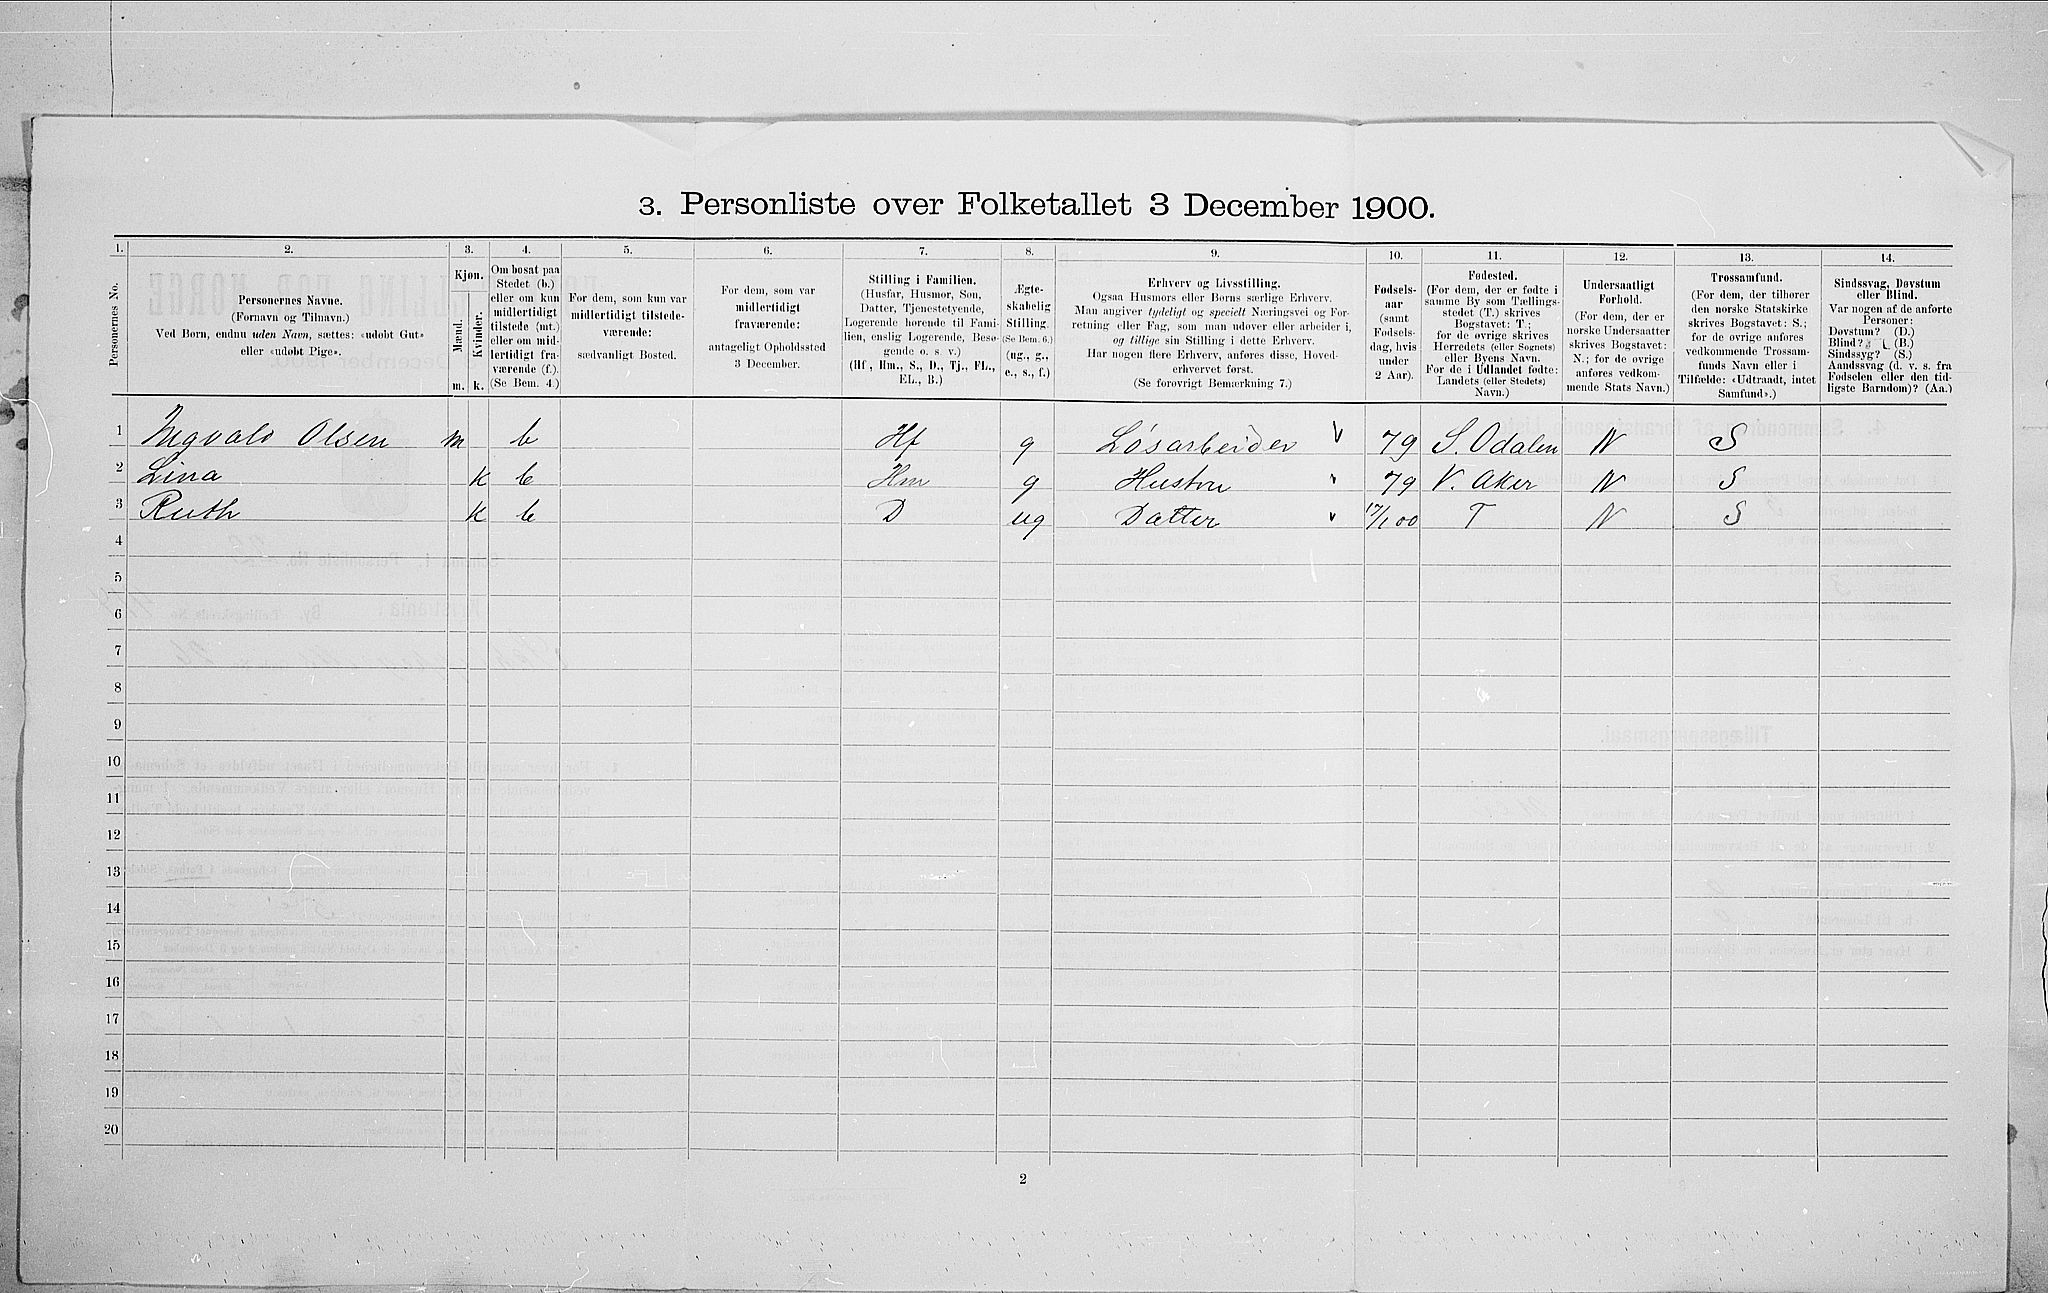 3. Personliste over Folketallet 3 December 1900.
1. 2. 3. 4. 5. 6. 7. 8. 9. 10. 11. 12. 13. 14.
Personernes No.
Personernes Navne.
(Fornavn og Tilnavn.)
Ved Børn, endnu uden Navn, sættes: «udøbt Gut»
eller «udøbt Pige».
Kjøn.
Mænd.
Kvinder.
m. k.
Om bosat paa
Stedet (b.)
eller om kun
midlertidigt
tilstede (mt.)
eller om mid-
lertidigt fra-
værende (f.).
(Se Bem. 4.)
For dem, som kun var
midlertidigt tilstede-
værende:
sædvanligt Bosted.
For dem, som var
midlertidigt
fraværende:
antageligt Opholdssted
3 December.
Stilling i Familien.
(Husfar, Husmor, Søn,
Datter, Tjenestetyende,
Logerende hørende til Fami-
lien, enslig Logerende, Besø-
gende o. s. v.)
(Hf, Hm., S., D., Tj., FL.,
EL., B.)
Ægte-
skabelig
Stilling.
(Se Bem. 6.)
(ug., g.,
e., s., f.)
Erhverv og Livsstilling.
Ogsaa Husmors eller Børns særlige Erhverv.
Man angiver tydeligt og specielt Næringsvei og For-
retning eller Fag, som man udøver eller arbeider i,
og tillige sin Stilling i dette Erhverv.
Har nogen flere Erhverv, anføres disse, Hoved-
erhvervet først.
(Se forøvrigt Bemærkning 7.)
Fødsels-
aar
(samt
Fødsels-
dag, hvis
under
2 Aar).
Fødested.
(For dem, der er fødte i
samme By som Tællings-
stedet (T.) skrives
Bogstavet: T.;
for de øvrige skrives
Herredets (eller Sognets)
eller Byens Navn.
For de i Udlandet fødte:
Landets (eller Stedets)
Navn.)
Undersaatligt
Forhold.
(For dem, der er
norske Undersaatter
skrives Bogstavet:
N.; for de øvrige
anføres vedkom-
mende Stats Navn.)
Trossamfund.
(For dem, der tilhører
den norske Statskirke
skrives Bogstavet: S.;
for de øvrige anføres
vedkommende Trossam-
funds Navn eller i
Tilfælde: «Udtraadt, intet
Samfund».)
Sindssvag, Døvstum
eller Blind.
Var nogen af de anførte
Personer:
Døvstum? (D.)
Blind? (B.)
Sindssyg? (S.)
Aandssvag (d. v. s. fra
Fødselen eller den tid-
ligste Barndom)? (Aa.)
1 Ingvald Olsen m b Hf g Løsarbeider 79 S. Odalen N S
2 Lina k b Hm g Hustru 79 V. Aker N S
3 Ruth k b D ug Datter 17/1 00 T N S
4
5
6
7
8
9
10
11
12
13
14
15
16
17
18
19
20
2